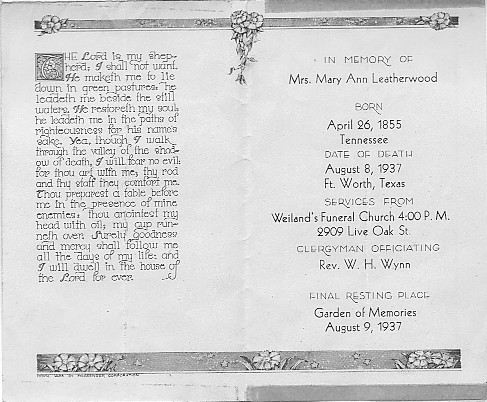 THE Lord is my shep-
herd; I shall not want.
He maketh me to lie
down in green pastures: he
leadeth me beside the still
waters. He restoreth my soul:
he leadeth me in the paths of
righteousness for his names
sake. Yea, though I walk
through the valley of the shad-
ow of death, I will fear no evil:
for thou art with me; thy rod
and thy staff they comfort me.
Thou preparest a table before
me in the presence of mine
enemies: thou anointest my
head with oil; my cup run-
neth over. Surely goodness
and mercy shall follow me
all the days of my life: and
I will dwell in the house of
the Lord for ever.
IN MEMORY OF
Mrs. Mary Ann Leatherwood
BORN
April 26, 1855
Tennessee
DATE OF DEATH
August 8, 1937
Ft. Worth, Texas
SERVICES FROM
Weiland's Funeral Church 4:00 P. M.
2909 Live Oak St.
CLERGYMAN OFFICIATING
Rev. W. H. Wynn
FINAL RESTING PLACE
Garden of Memories
August 9, 1937